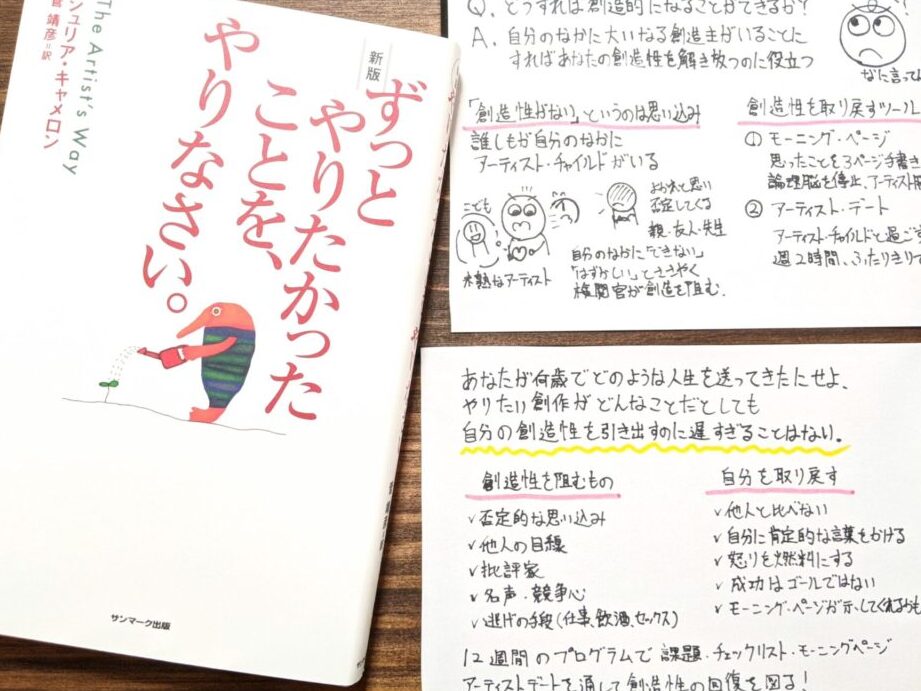 新版
ずっと
やりたかった
ことを、
やりなさい。
The Artist's Way
ジュリア・キャメロン
菅 靖彦=訳
サンマーク出版
Q. どうすれば創造的になることができるか?
A. 自分のなかに大いなる創造主がいることに
すればあなたの創造性を解き放つのに役立つ
なに言って
「創造性がない」というのは思い込み
誰しもが自分のなかに
アーティスト・チャイルドがいる
こども
未熟なアーティスト
よかれと思い
否定してくる
親・友人・先生
自分のなかに「できない」
「はずかしい」とささやく
検閲官が創造を阻む.
創造性を取り戻すツール
① モーニング・ページ
思ったことを3ページ手書き
論理脳を停止、アーティスト
② アーティスト・デート
アーティスト・チャイルドと過ごす
週2時間、ふたりきりで
あなたが何歳でどのような人生を送ってきたにせよ、
やりたい創作がどんなことだとしても
自分の創造性を引き出すのに遅すぎることはない。
創造性を阻むもの
✓否定的な思い込み
✓他人の目線
✓批評家
✓名声・競争心
✓逃げの手段(仕事、飲酒、セックス)
自分を取り戻す
✓他人と比べない
✓自分に肯定的な言葉をかける
✓怒りを燃料にする
✓成功はゴールではない
✓モーニング・ページが示してくれるかも
12週間のプログラムで 課題・チェックリスト・モーニングページ
アーティストデートを通して創造性の回復を図る!